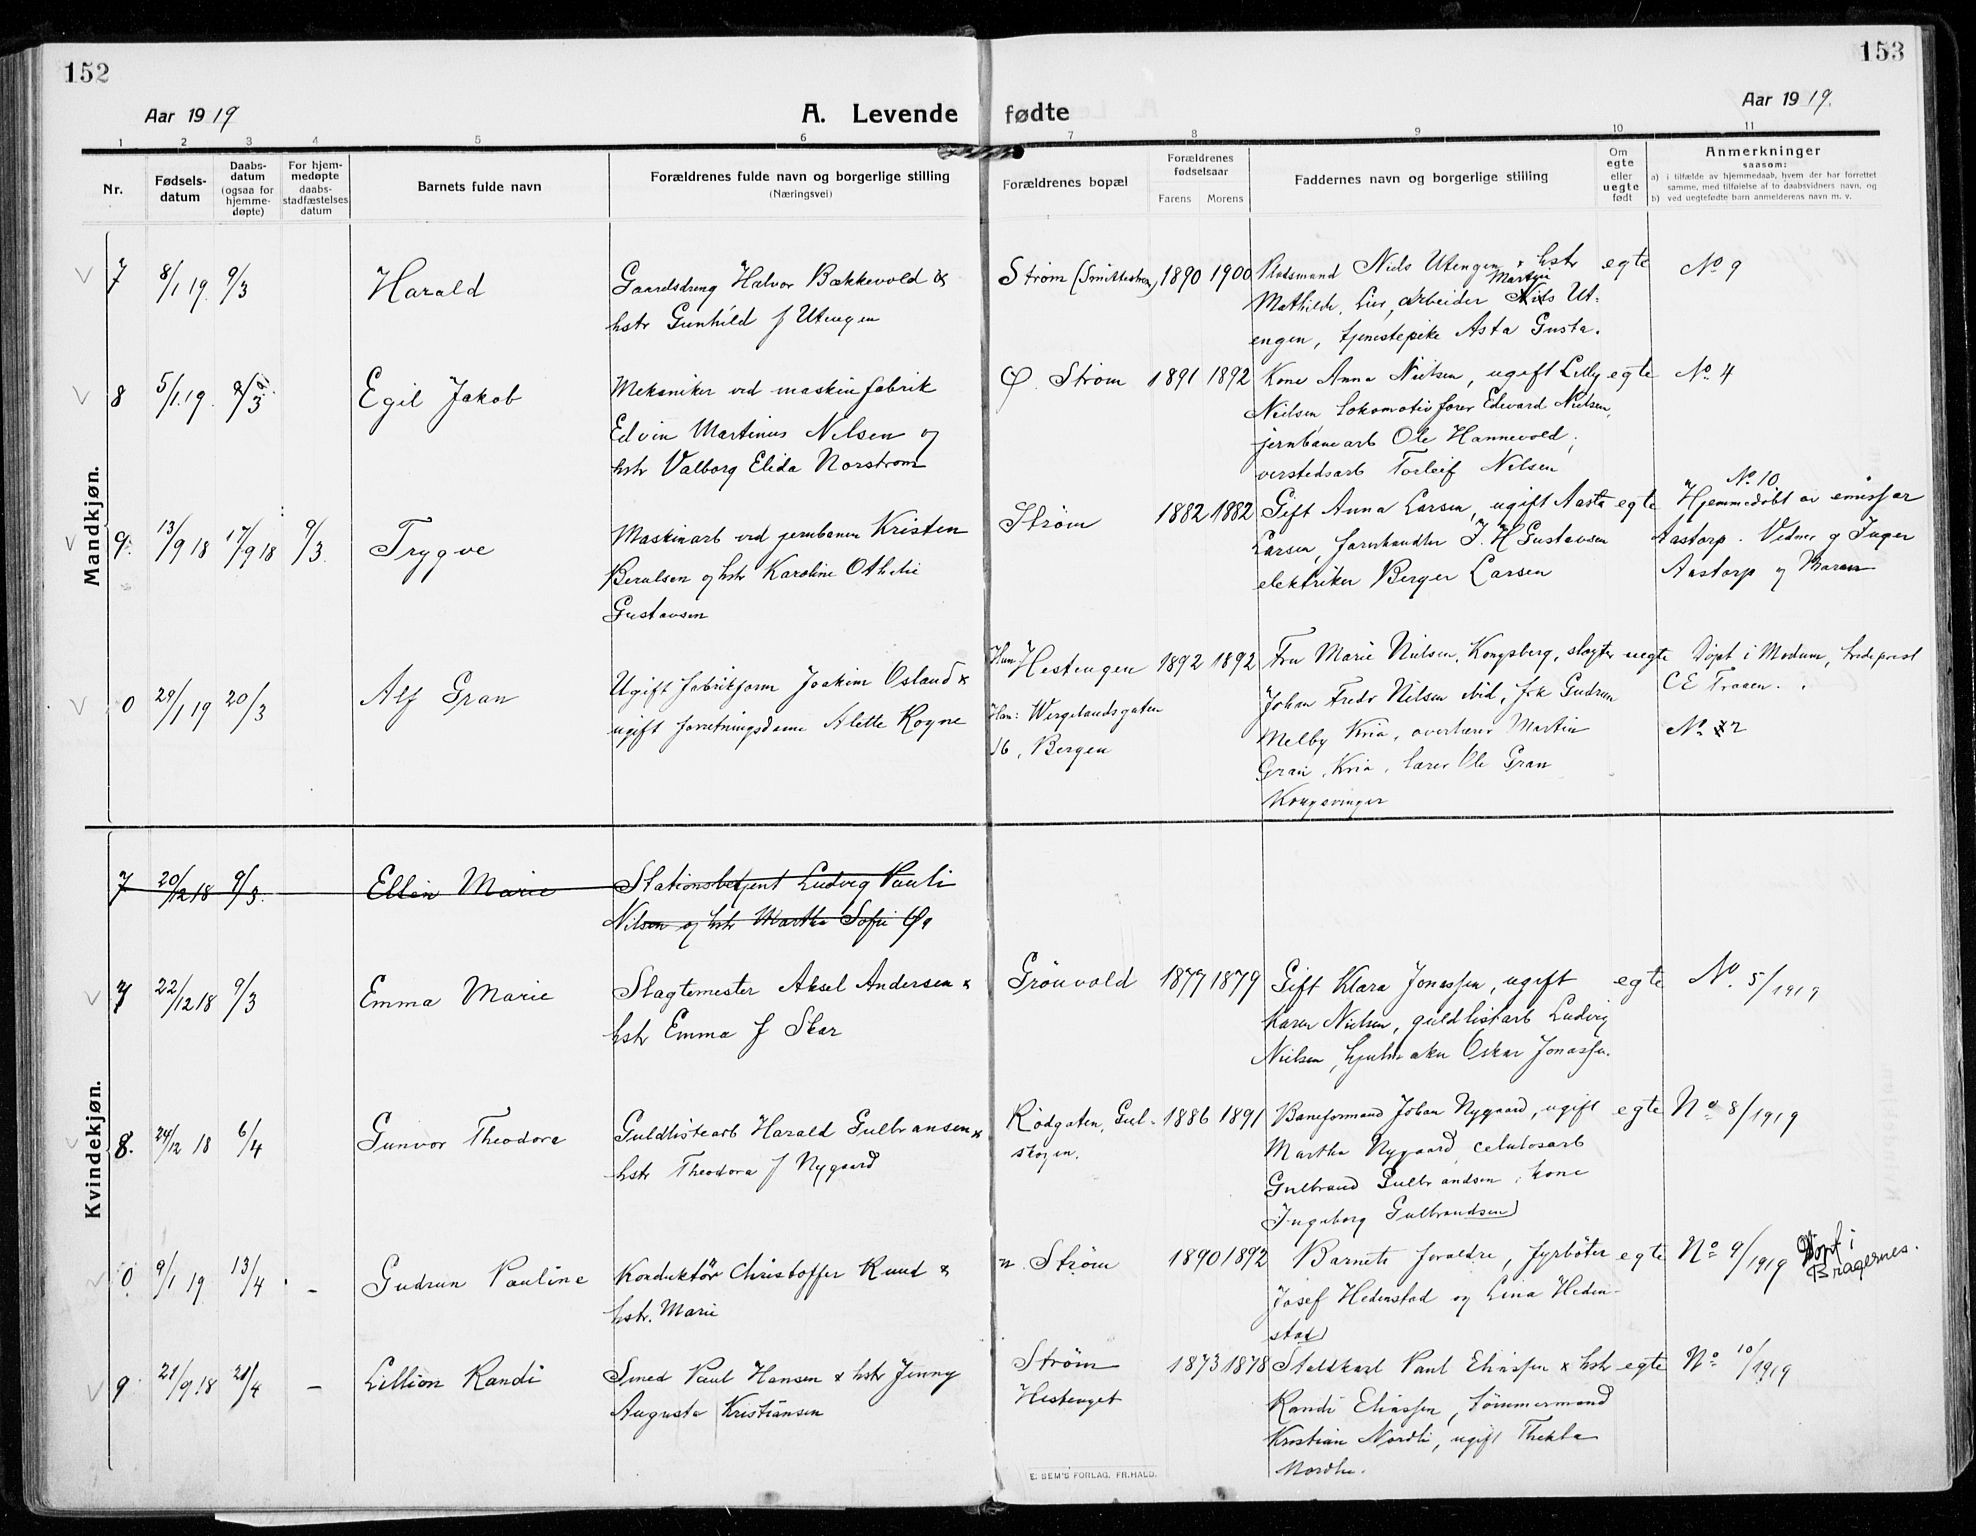 152
153
Aar 1919
A. Levende fødte
Aar 1919.
1 2 3 4 5 6 7 8 9 10 11
Nr.
Fødsels-
datum
Daabs-
datum
(ogsaa for
hjemme-
døpte)
For hjem-
medøpte
daabs-
stadfæstelses
datum
Barnets fulde navn
Forældrenes fulde navn og borgerlige stilling
(Næringsvei)
Forældrenes bopæl
Forældrenes
fødselsaar
Farens Morens
Faddernes navn og borgerlige stilling
Om
egte
eller
uegte
født
Anmerkninger
saasom:
a) i tilfælde av hjemmedaab, hvem der har forrettet
samme, med tilføielse af to daabsvidners navn, og
b) ved uegtefødte barn anmelderens navn m. v.
Mandkjøn.
7 8/1 19. 9/3 Harald
Gaardsdreng Halvor Bakkevold &
hstr Gunhild f Utengen
Strøm (Smittestrøm) 1890 1900
Pladsmand Niels Utengen & hstr
Mathilde, Lier, arbeider Martin Ut-
engen, tjenestepike Asta Gusta.
egte No 9
8 5/1.19. 9/3 Egil Jakob
Mekaniker ved maskinfabrik
Edvin Martinius Nilsen og
hstr Valborg Elida Norstrøm
Ø. Strøm 1891 1892
Kone Anna Nielsen, ugift Lilly
Nielsen Lokomotivfører Edvard Nielsen,
jernbanearb Ole Hannevold,
verstedsarb Torleif Nilsen
egte No. 4
9. 13/9 18 17/9 18 9/3. Trygve
Maskinarb ved jernbanen Kristen
Berulsen og hstr Karoline Othilie
Gustavsen
Strøm 1882 1882
Gift Anna Larsen, ugift Aasta
Larsen, farvehandler J. H Gustavsen
elektriker Berger Larsen
egte No. 10
Hjemmedøbt av emissær
Aastorp. Vidner og Inger
Aastorp og Maren
0 29/1 19 20/3 Alf Gran
Ugift fabrikform Joakim Osland &
ugift forretningsdame Alette Rogne
Hun: Hestengen 1892 1892
Han: Wergelandsgaten
16, Bergen
Fru Marie Nielsen, Kongsberg, slagter
Johan Fredr Nilsen ibid, frk Gudrun
Melby Kria, overlærer Martin
Gran, Kria, lærer Ole Gran
Kongsvinger
uegte Døpt i Modum,
CE Traaen.
No 2
Kvindekjøn.
7 20/12 18 9/3. Ellen Marie
Stationsbetjent Ludvig Pauli
Nilsen og hstr Martha Sofie
7 22/12 18 9/3 Emma Marie
Slagtemester Aksel Andersen &
hstr Emma f Skar
Grönvold 1877 1879
Gift Klara Jonassen, ugift
Karen Nielsen, guldlistarb Ludvig
Nielsen, Oskar Jonassen.
egte No. 5/1919
8. 24/12 18 6/4 Gunvor Theodora
Guldlistearb Harald Gulbransen &
hstr Theodora f Nygaard
Rødgaten, Gul-
skogen. 1886 1891
Baneformand Johan Nygaard, ugift
Martha Nygaard, celulosarb
Gulbrand Gulbrandsen, kone
Ingeborg Gulbrandsen
egte No 8/1919
0 9/1 19. 13/4 - Gudrun Pauline
Konduktör Christoffer Ruud &
hstr. Marie
n. Strøm 1890 1892
Barnets foraldre, fyrbøter
Josef Hedenstad og Lina Heden-
stad
egte No 9/1919 Døpt i
Bragernes.
9 21/9.18 21/4 - Lillian Randi
Smed Paul Hansen & hstr Jenny
Augusta Kristiansen
Strøm
Hestenget 1873 1878
Staldkarl Paul Eliassen & hstr
Randi Eliassen, tömmermand
Kristian Nordli, ugift Thekla
Nordli.
egte No 10/1919
E. SEM'S FORLAG. FR.HALD.